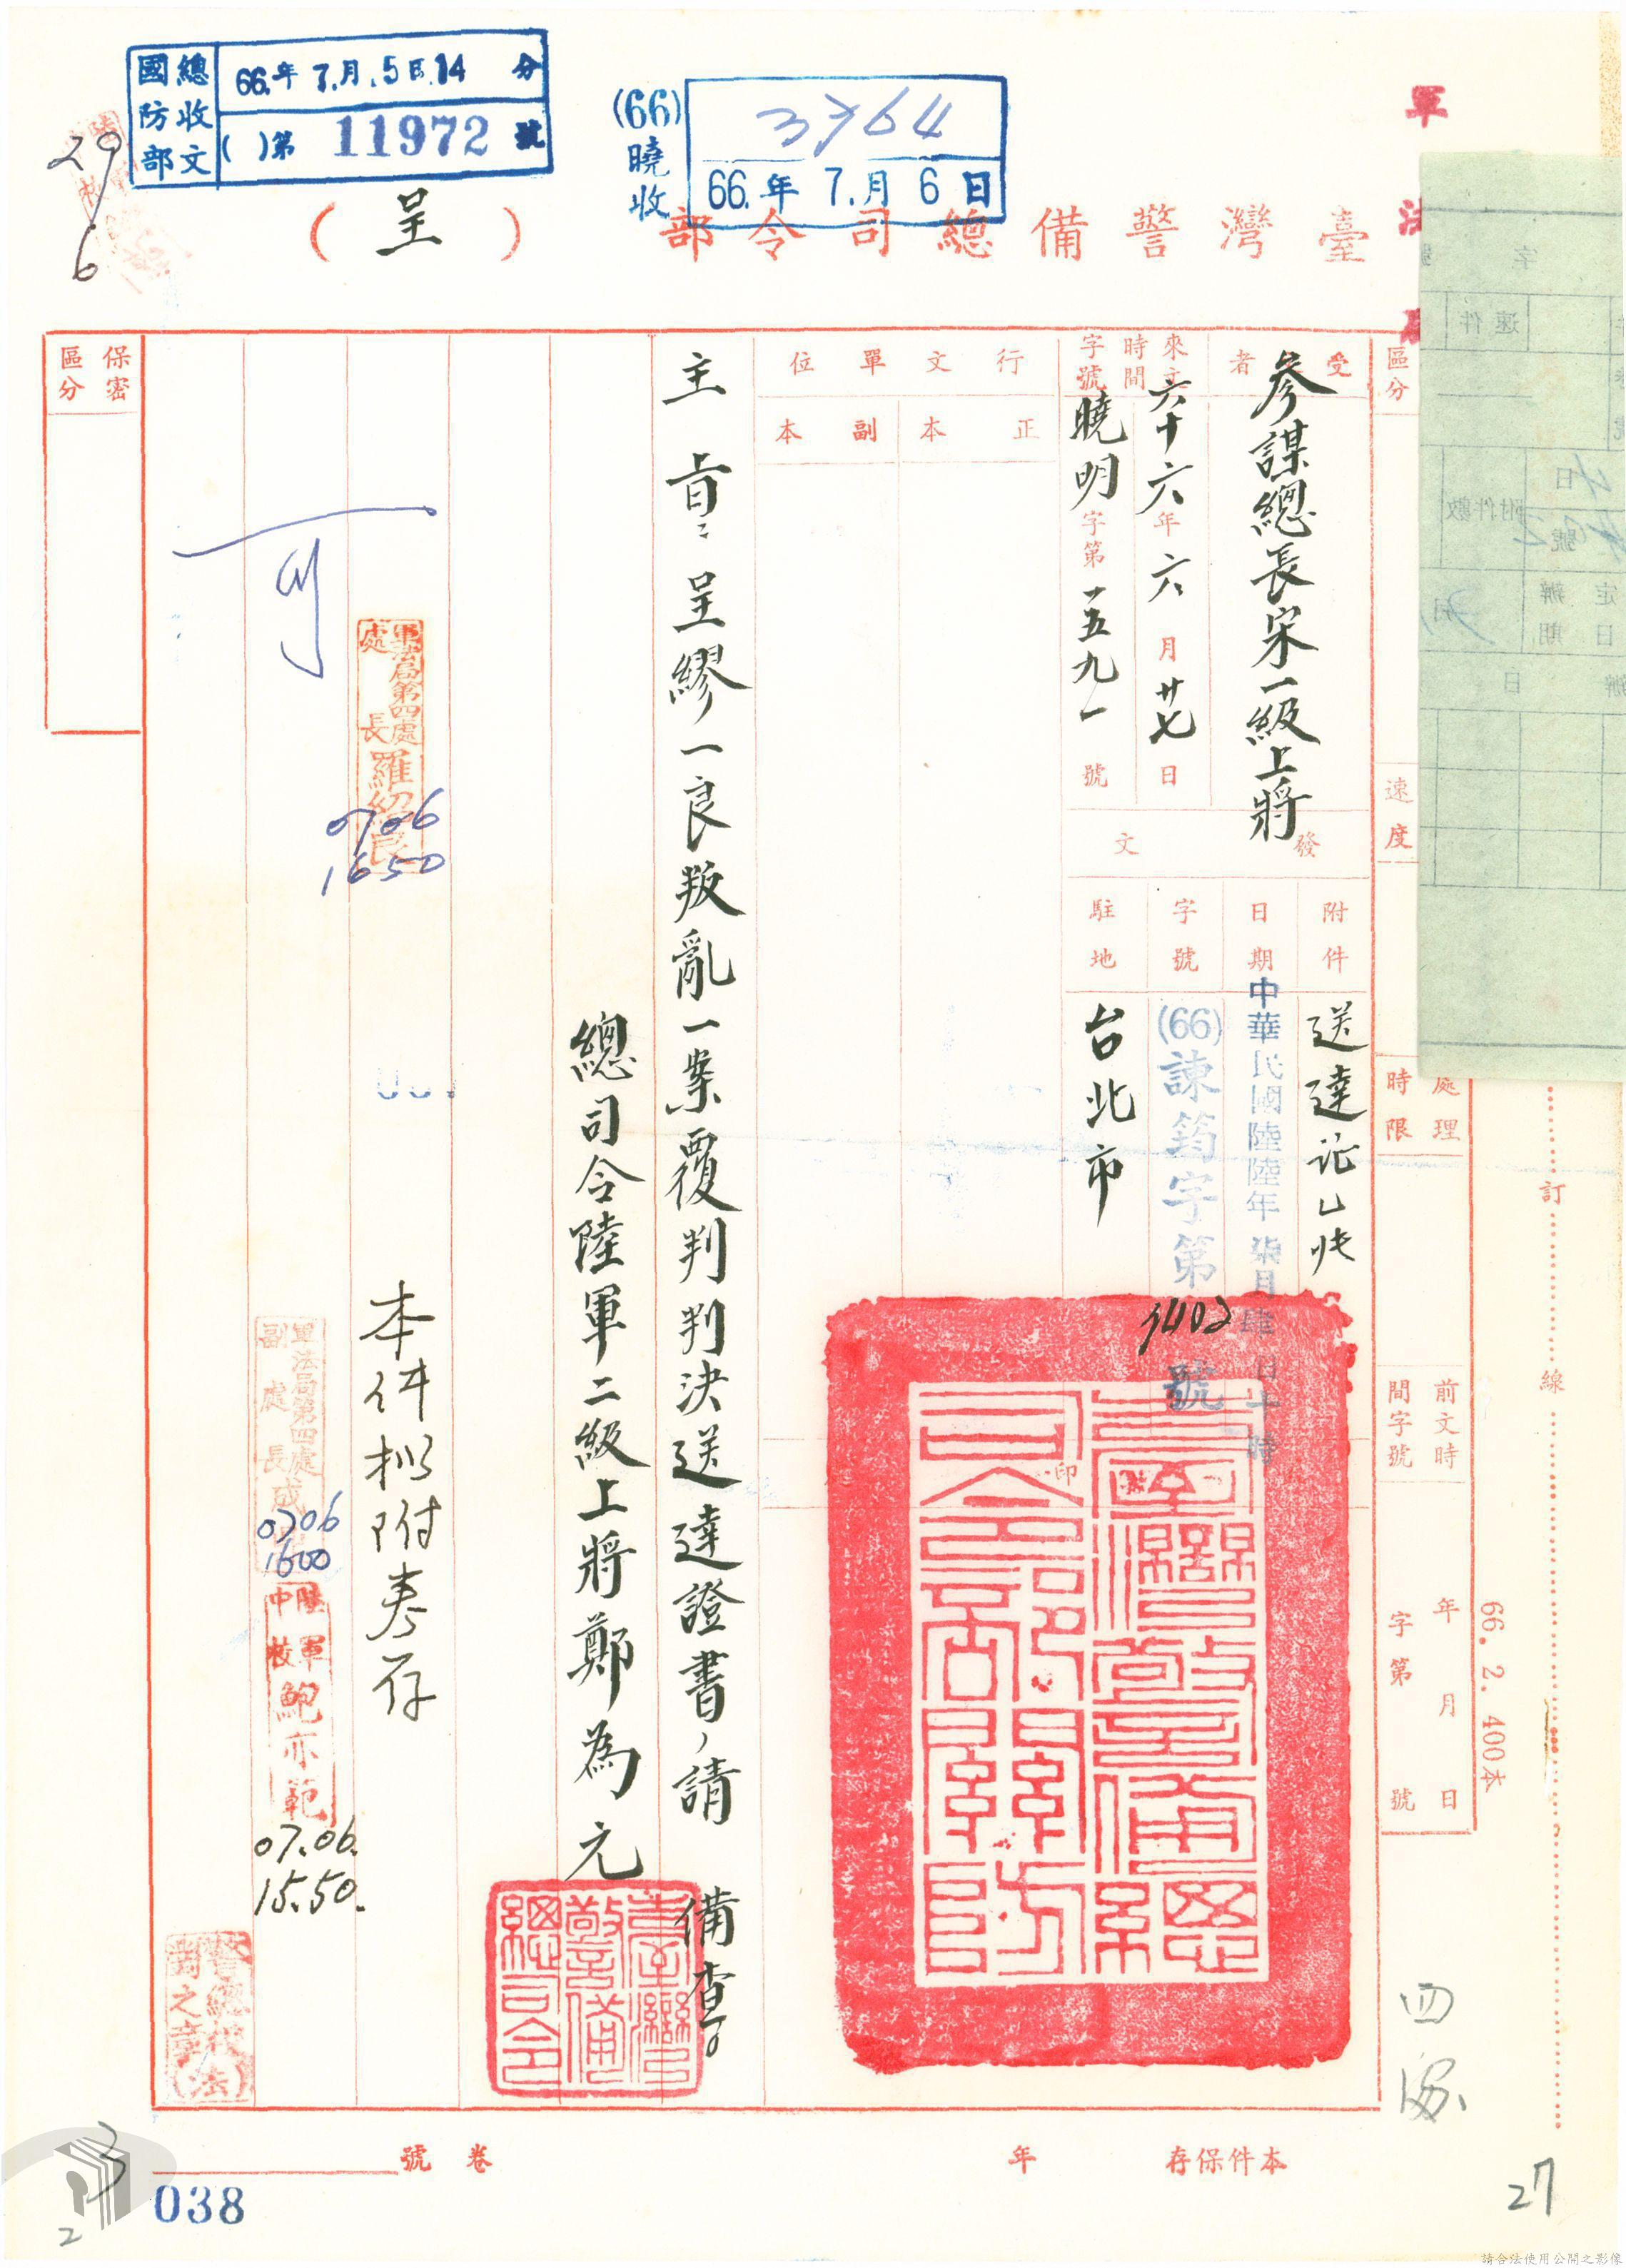 國防部
總收文
66.年 7.月.5日.14 分
( )第 11972 號
(66)曉收
3764
66.年 7.月 6日
29/6
軍法局
臺灣警備總司令部
(呈)
區分
速度
處理時限
前文時間字號
年 月 日
字第 號
受者
參謀總長宋一級上將
來文時間字號
六十六年六月廿七日
曉明字第一五九一號
發文
附件
送達証乙件
日期
中華民國陸陸年柒月肆日十時
字號
(66)諫筠字第1402號
駐地
台北市
行文單位
正本
副本
印
臺灣警備總司令部關防
主旨:呈繆一良叛亂一案覆判判決送達證書,請 備查。
總司令陸軍二級上將鄭為元
臺灣警備總司令
本件擬附卷存
軍法局第四處處長羅紹良
0706
1650
可
軍法局第四處副處長成
0706
1600
陸軍中校鮑亦範
07.06.
15.50.
保密區分
66.2.400本
訂
線
本件保存 年
卷 號
038
3
2
27
速件
附件數
請合法使用公開之影像